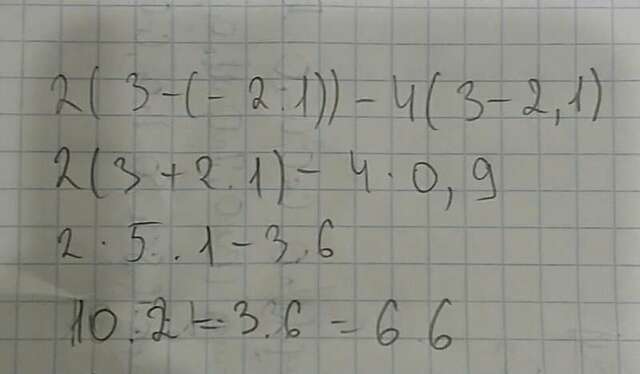 2(3-(-2.1))-4(3-2,1)
2(3+2.1)-4·0,9
2·5.1-3.6
10.2-3.6=6.6